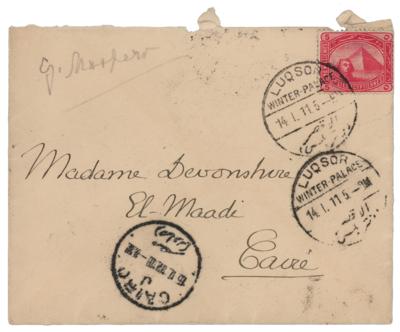 G. Maspero
LUQSOR
WINTER-PALACE
14.I.11.5-PM
الاقصر
LUQSOR
WINTER-PALACE
14.I.11.5-PM
الاقصر
Madame Devonshire
El-Maadi
Cairé
CAIRO
J